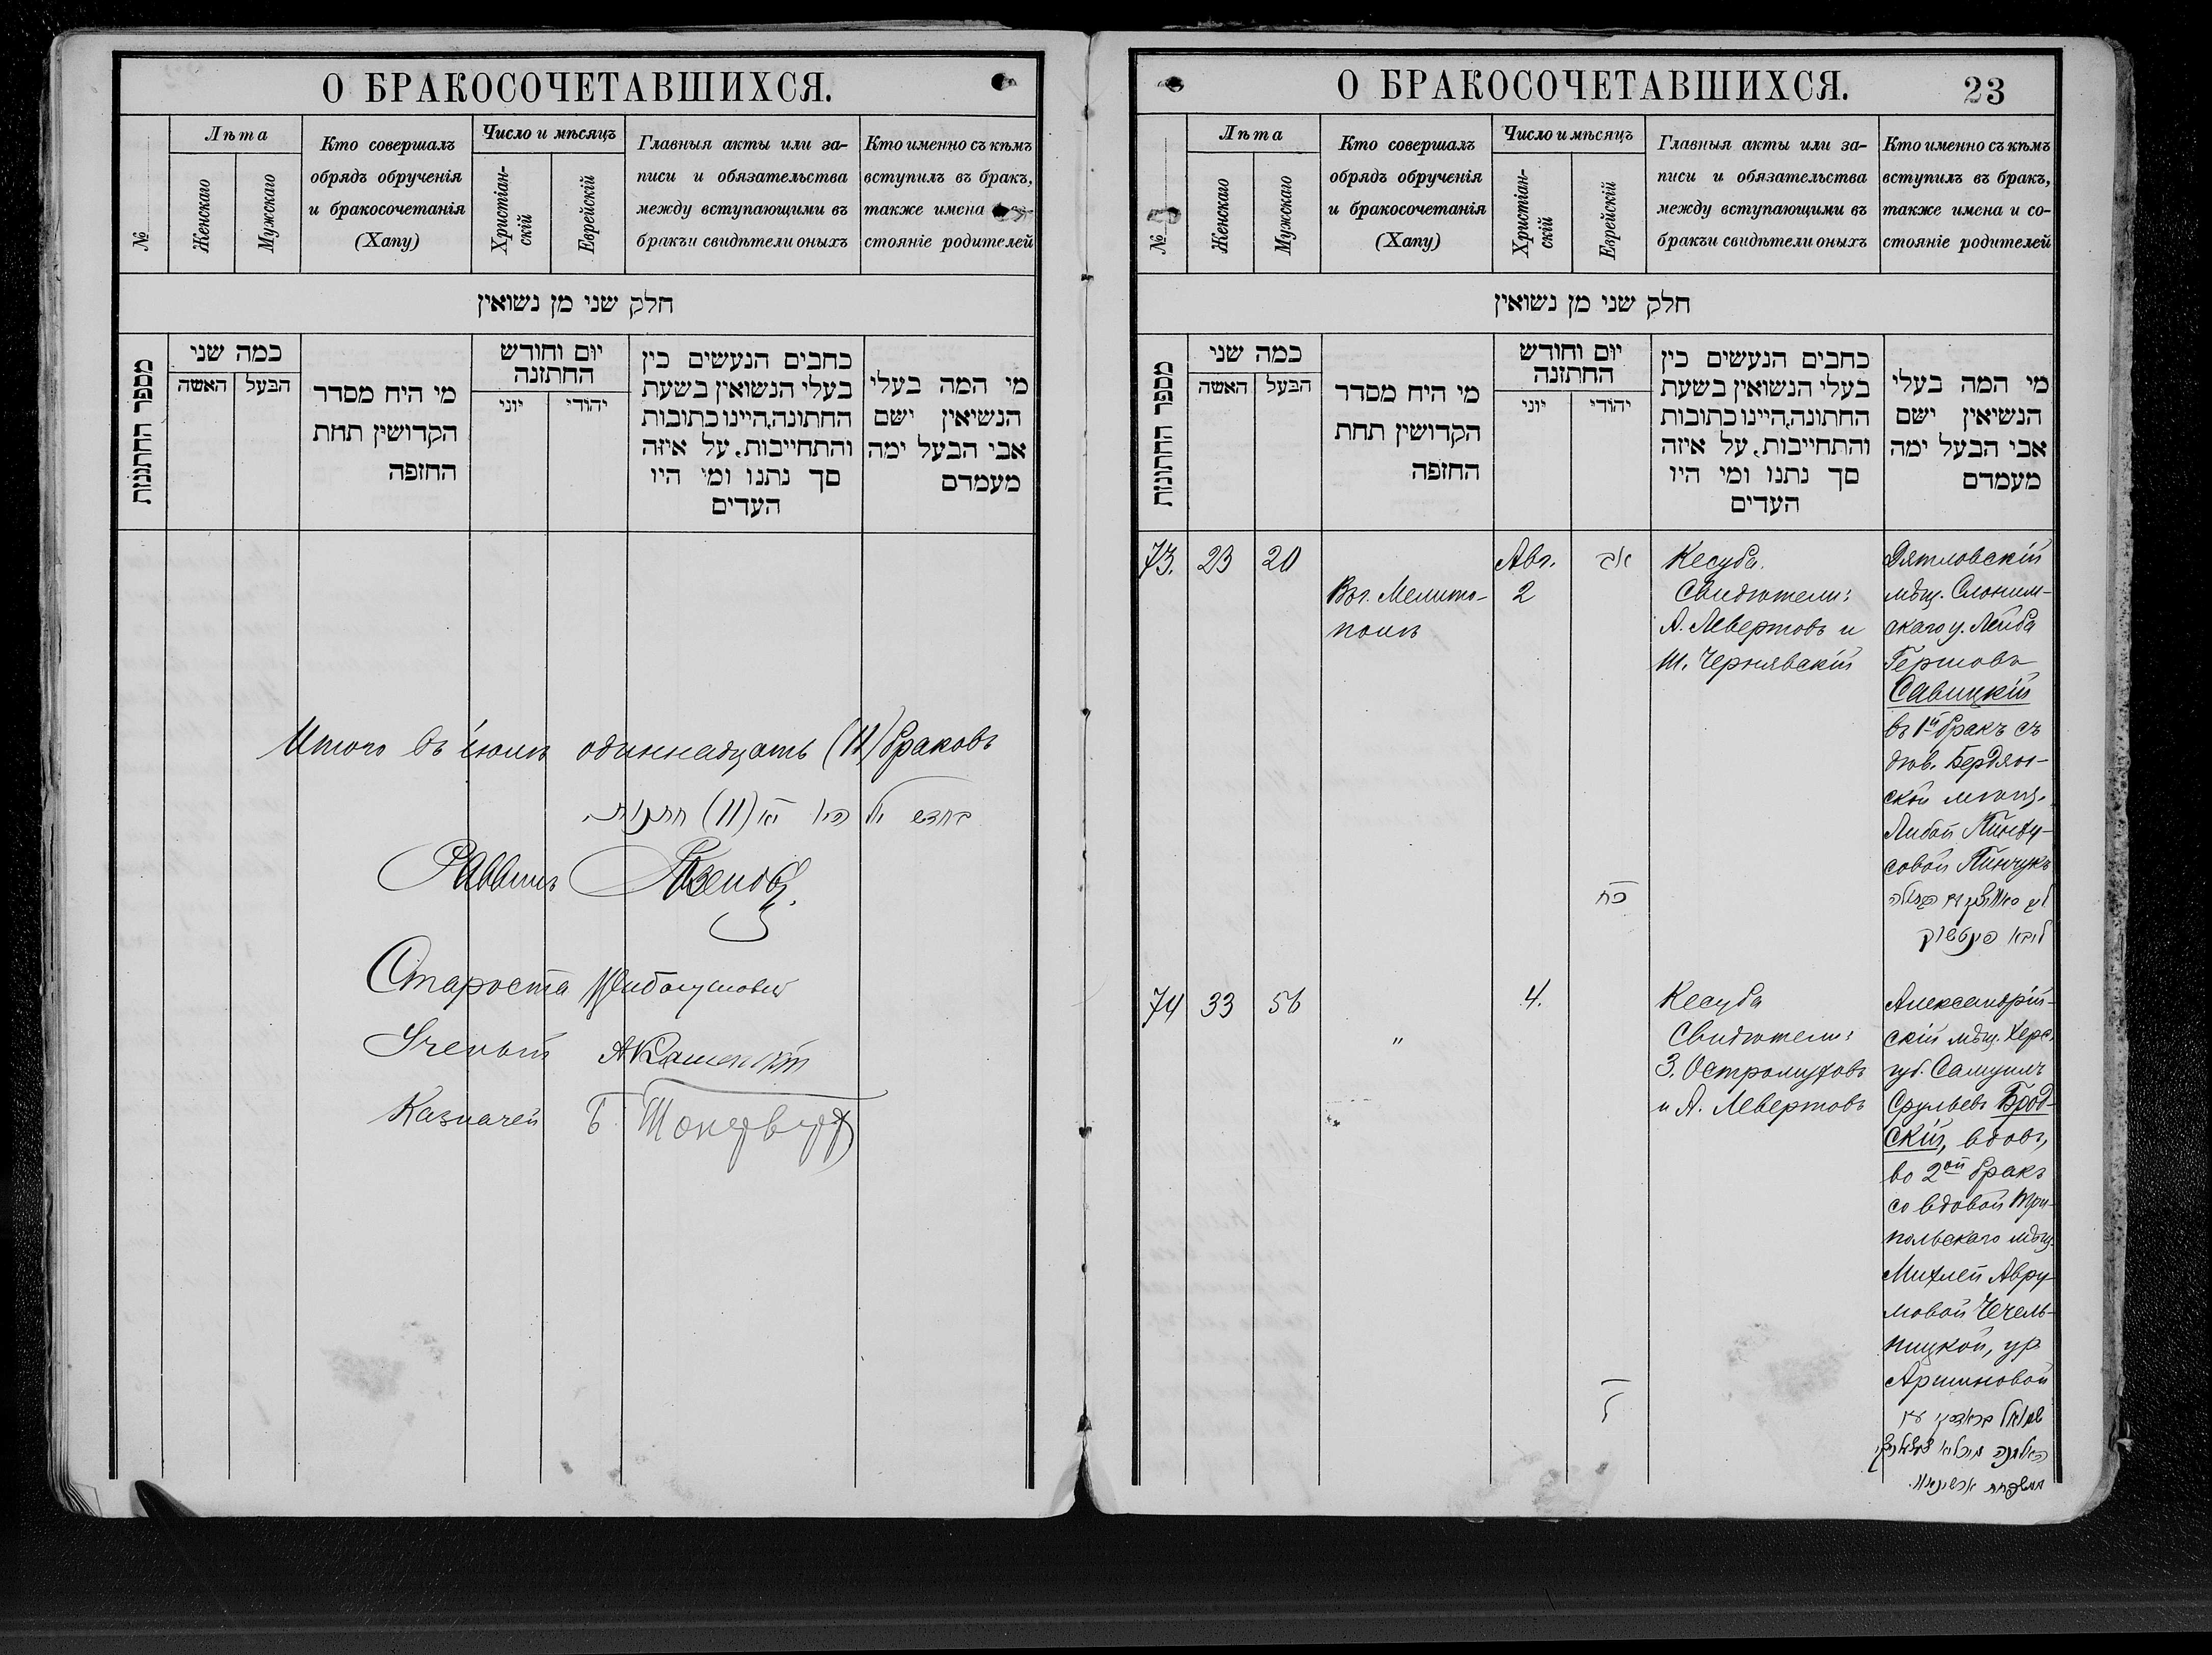 О БРАКОСОЧЕТАВШИХСЯ.
№
Лѣта
Женскаго
Мужскаго
Кто совершалъ
обрядъ обрученія
и бракосочетанія
(Хапу)
Число и мѣсяцъ
Христіан-
скій
Еврейскій
Главныя акты или за-
писи и обязательства
между вступающими въ
бракъи свидѣтели оныхъ
Кто именно съ кѣмъ
вступилъ въ бракъ,
также имена
стояніе родителей
חלק שני מן נשואין
מספר החתונות
כמה שני
האשה
הבעל
מי היח מסדר
הקדושין תחת
החופה
יום וחודש
החתונה
יוני
יהודי
כחבים הנעשים כין
בעלי הנשואין בשעת
החתונה,היינו כתובות
והתחייבות, על איזה
סך נתנו ומי היו
העדים
מי המה בעלי
הנשיאין ישם
אבי הבעל ימה
מעמדם
Итого въ іюлѣ одиннадцать (11) браковъ
(11)
Раввинъ
Староста
Ученый
Казначей Б.
О БРАКОСОЧЕТАВШИХСЯ.
23
№
Лѣта
Женскаго
Мужскаго
Кто совершалъ
обрядъ обрученія
и бракосочетанія
(Хапу)
Число и мѣсяцъ
Христіан-
скій
Еврейскій
Главныя акты или за-
писи и обязательства
между вступающими въ
бракъи свидѣтели оныхъ
Кто именно съ кѣмъ
вступилъ въ бракъ,
также имена и со-
стояніе родителей
חלק שני מן נשואין
מספר החתונות
כמה שני
האשה
הבעל
מי היח מסדר
הקדושין תחת
החופה
יום וחודש
החתונה
יוני
יהודי
כחבים הנעשים כין
בעלי הנשואין בשעת
החתונה,היינו כתובות
והתחייבות, על איזה
סך נתנו ומי היו
העדים
מי המה בעלי
הנשיאין ישם
אבי הבעל ימה
מעמדם
73.
23
20
Въ г. Мелито-
полѣ
Авг.
2
אב
כח
Кесуба.
Свидѣтели:
А. Левертовъ и
Ш. Чернявскій
Дятловскій
мѣщ. Слоним-
скаго у. Лейба
Гершовъ
Савицкій
въ 1й бракъ съ
дѣв. Бердян-
ской мѣщ.
Либой Пинху-
совой Пинчукъ
ליבא פינטשוק
74
33
56
"
4.
ל
Кесуба
Свидѣтели:
З. Остромуховъ
и А. Левертовъ
Александрій-
скій мѣщ. Херс.
губ. Самуилъ
Срульевъ Брод-
скій, вдов.,
во 2ой бракъ
со вдовой Три-
польскаго мѣщ.
Михлей Авру-
мовой Чечель-
ницкой, ур.
Аршиновой
שמואל בראדסקי עם
האלמנה מיכלא